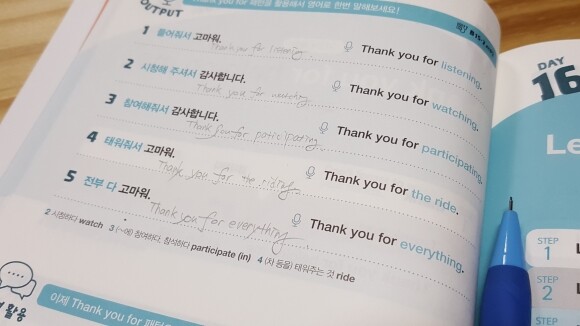 OUTPUT
Thank you for 패턴을 활용해서 영어로 한번 말해보세요!
1 들어줘서 고마워.
Thank you for listening.
Thank you for listening.
2 시청해 주셔서 감사합니다.
Thank you for watching.
Thank you for watching.
3 참여해줘서 감사합니다.
Thank you for paticipating.
Thank you for participating.
4 태워줘서 고마워.
Thank you for the riding.
Thank you for the ride.
5 전부 다 고마워.
Thank you for everything.
Thank you for everything.
2 시청하다 watch 3 (~에) 참여하다, 참석하다 participate (in) 4 (차 등을) 태워주는 것 ride
활용
이제 Thank you for
DAY
16
Le
STEP
1
STEP
2
STEP